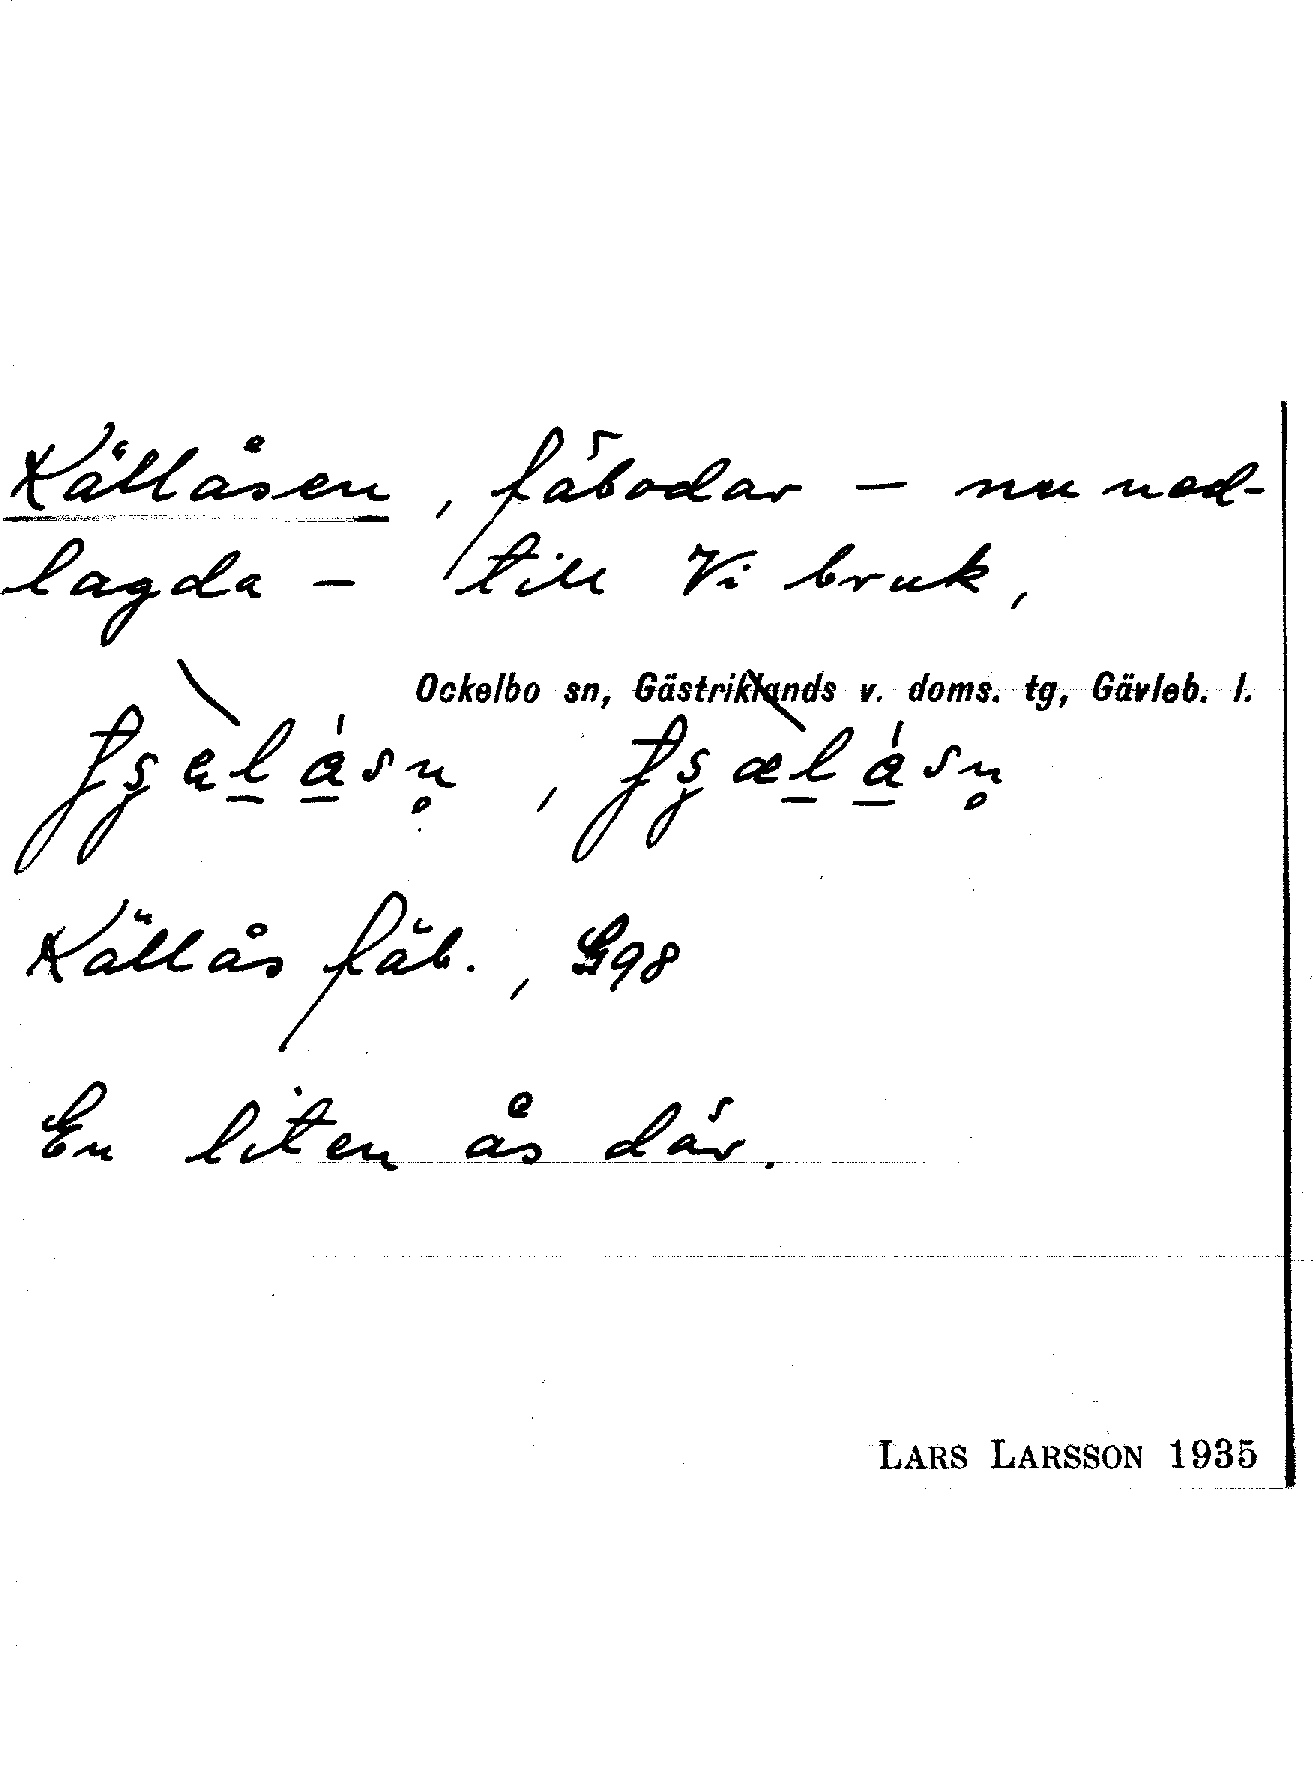 Källåsen, fäbodar – nu ned-
lagda – till Vi bruk,
Ockelbo sn, Gästriklands v. doms. tg, Gävleb. l.
Källås fäb., G98
En liten ås där.
LARS LARSSON 1935